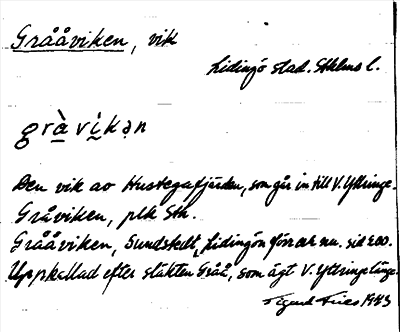 Grååviken, vik
Lidingö stad. Sthlms l.
gràvikən
Den vik av Hustegafjärden, som går in till V. Yttringe.
Gråviken, plk Sth.
Grååviken, Sundstedt, Lidingön förr och nu. sid 200.
Uppkallad efter släkten Gråå, som ägt V. Yttringe länge.
Sigurd Fries 1943